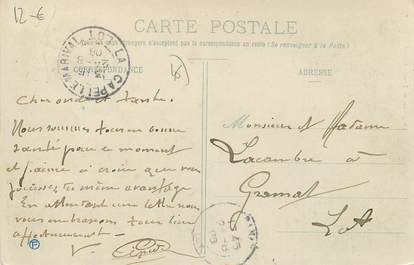 12 -€
CARTE POSTALE
(Se renseigner à la Poste)
CORRESPONDANCE
ADRESSE
LACAPELLE MARIVAL LOT
Cher oncle et tante
Nous sommes tous en bonne
santé pour ce moment
et j'aime à croire que vous
jouissez du même avantage
En attendant une lettre nous
vous embrassons tous bien
affectueusement
V.
Monsieur et Madame
Lacambre à
Gramat
Lot